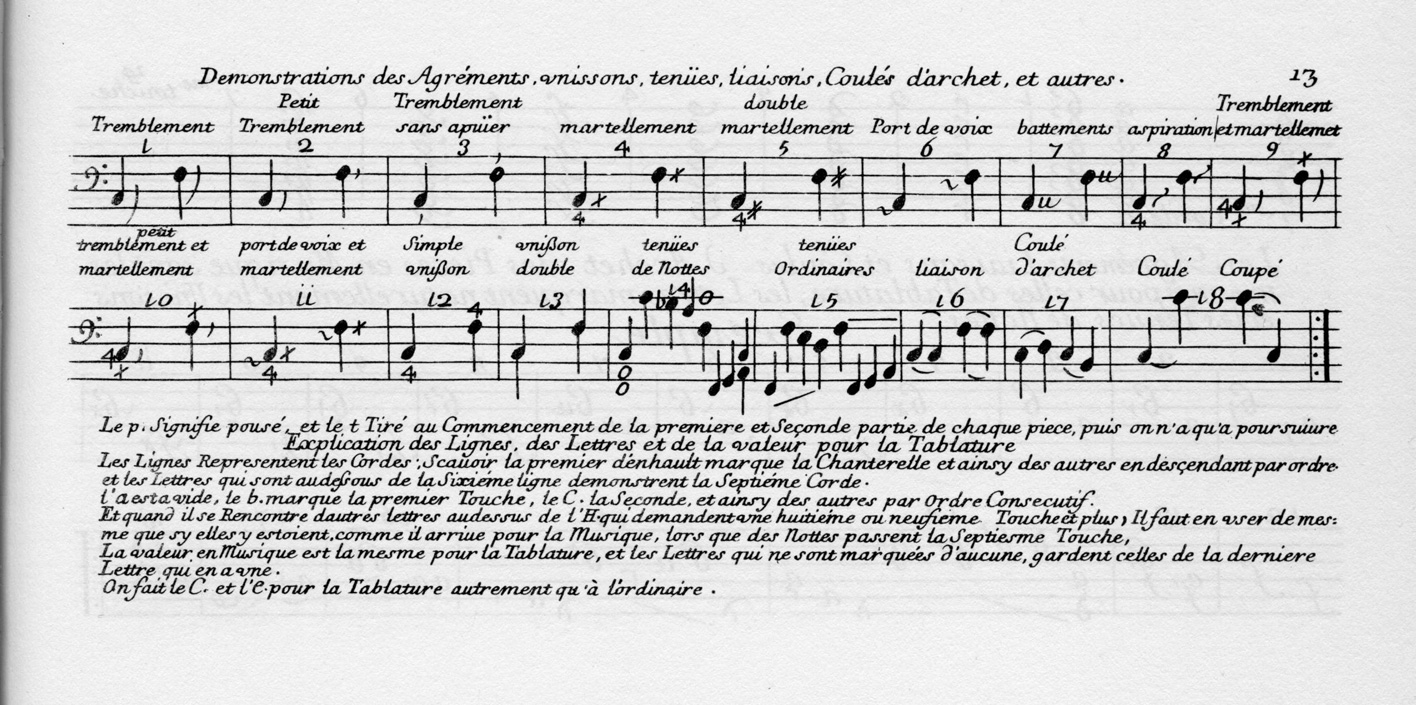 Demonstrations des Agréments, vnissons, tenües, liaisons, Coulés d'archet, et autres. 13
Petit Tremblement double Tremblement
Tremblement Tremblement sans apüier martellement martellement Port de voix battements aspiration et martellemet
1 2 3 4 5 6 7 8 9
4 4 4 4
petit
tremblement et port de voix et Simple vnißon tenües tenües Coulé
martellement martellement vnißon double de Nottes Ordinaires liaison d'archet Coulé Coupé
10 ii 12 13 14 15 16 17 18
4 4 4 4 0 0 0
Le p. Signifie pousé, et le t Tiré au Commencement de la premiere et Seçonde partie de chaque piece, puis on n'a qu'a poursuiure
Explication des Lignes, des Lettres et de la valeur pour la Tablature
Les Lignes Representent les Cordes, Scauoir la premier dénhault marque la Chanterelle et ainsy des autres en desçendant par ordre
et les Lettres qui sont audeßous de la Sixiéme ligne demonstrent la Septiéme Corde.
l'a est a vide, le b. marque la premier Touche, le C. la Seconde, et ainsy des autres par Ordre Consecutif.
Et quand il se Rencontre dautres lettres audessus de l'H. qui demandent vne huitieme ou neufieme Touche et plus, Il faut en vser de mes=
me que sy elles y estoient, comme il arriue pour la Musique, lors que des Nottes passent la Septiesme Touche,
La valeur en Musique est la mesme pour la Tablature, et les Lettres qui ne sont marquées d'aucune, gardent celles de la derniere
Lettre qui en a vne.
On fait le C. et l'e. pour la Tablature autrement qu'à l'ordinaire.